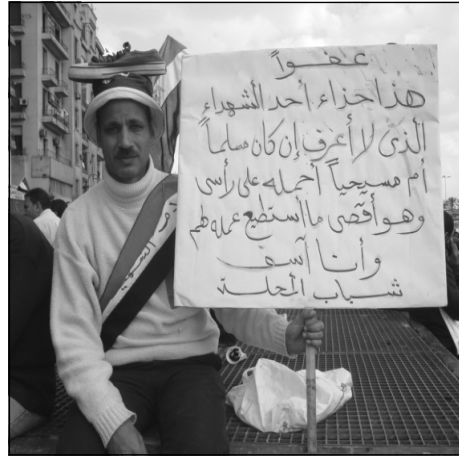 عفواً
هذا حذاء أحد الشهداء
الذى لا أعرف إن كان مسلماً
أم مسيحياً أحمله على رأسى
وهو أقصى ما أستطيع عمله لهم
وأنا آسف
شباب المحلة